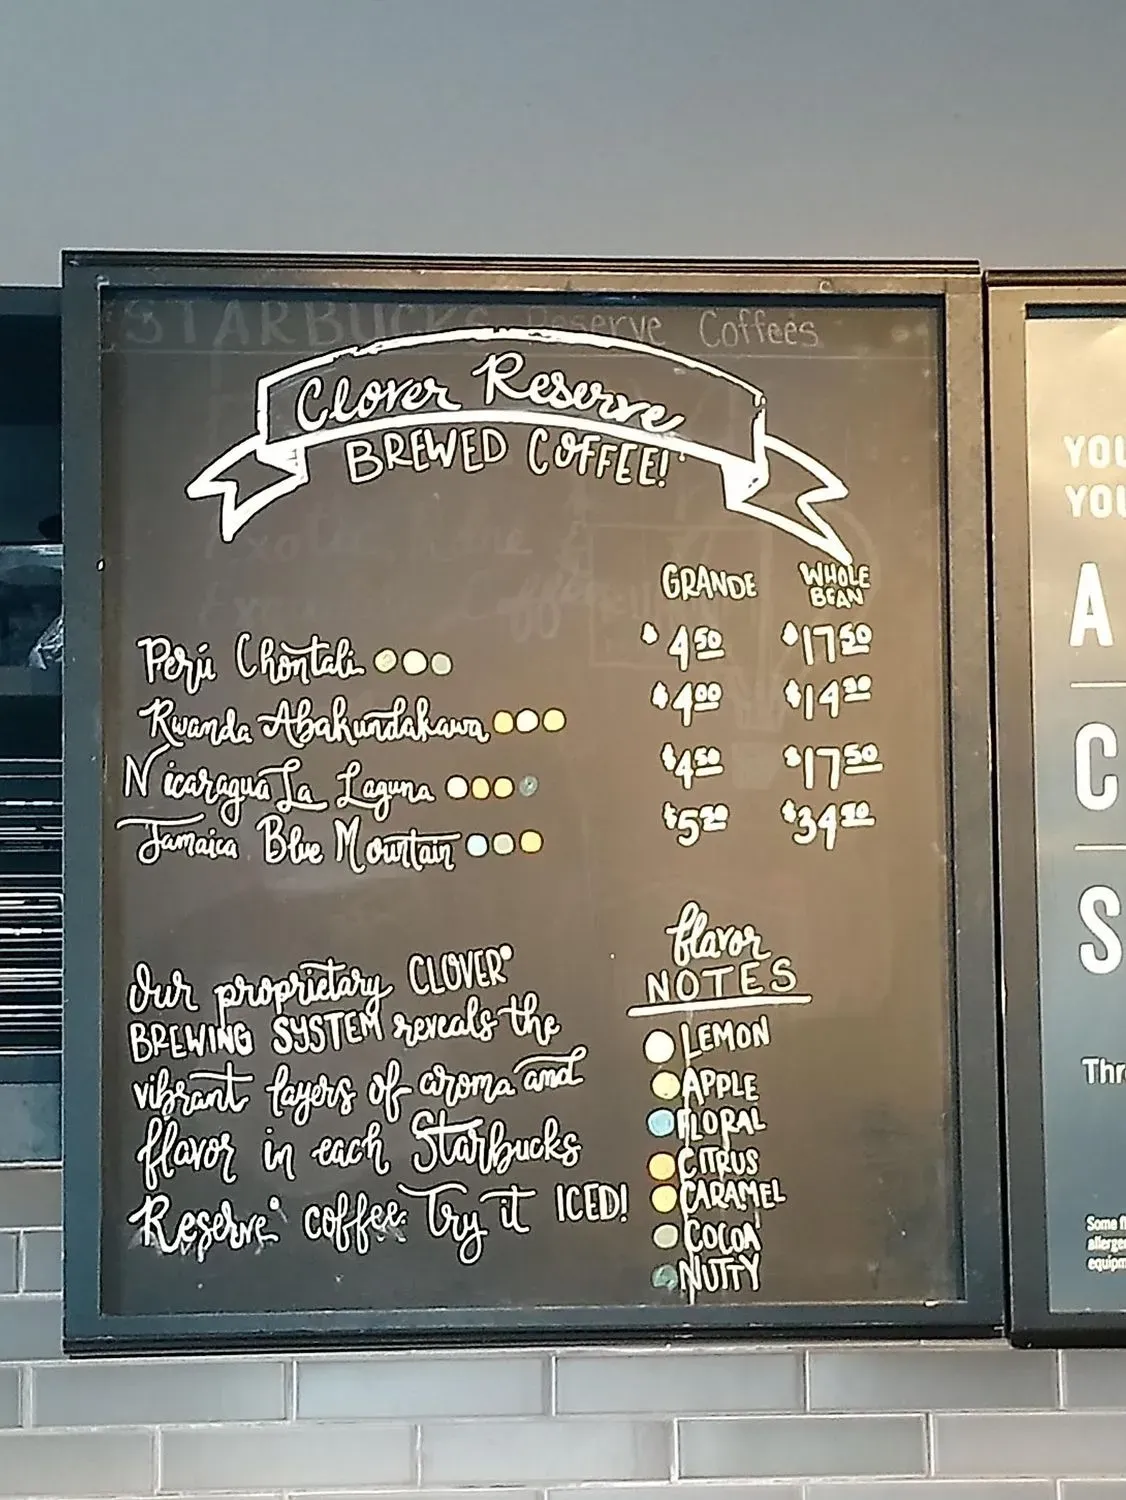 STARBUCKS Reserve Coffees
Clover Reserve
BREWED COFFEE!
GRANDE WHOLE BEAN
Perú Chontali $4.50 $17.50
Rwanda Abakundakawa $4.00 $14.50
Nicaragua La Laguna $4.50 $17.50
Jamaica Blue Mountain $5.50 $34.50
Our proprietary CLOVER®
BREWING SYSTEM reveals the
vibrant layers of aroma and
flavor in each Starbucks
Reserve® coffee. Try it ICED!
flavor
NOTES
LEMON
APPLE
FLORAL
CITRUS
CARAMEL
COCOA
NUTTY
YOU
YOU
A
C
S
Thr
Some f
allerge
equipm